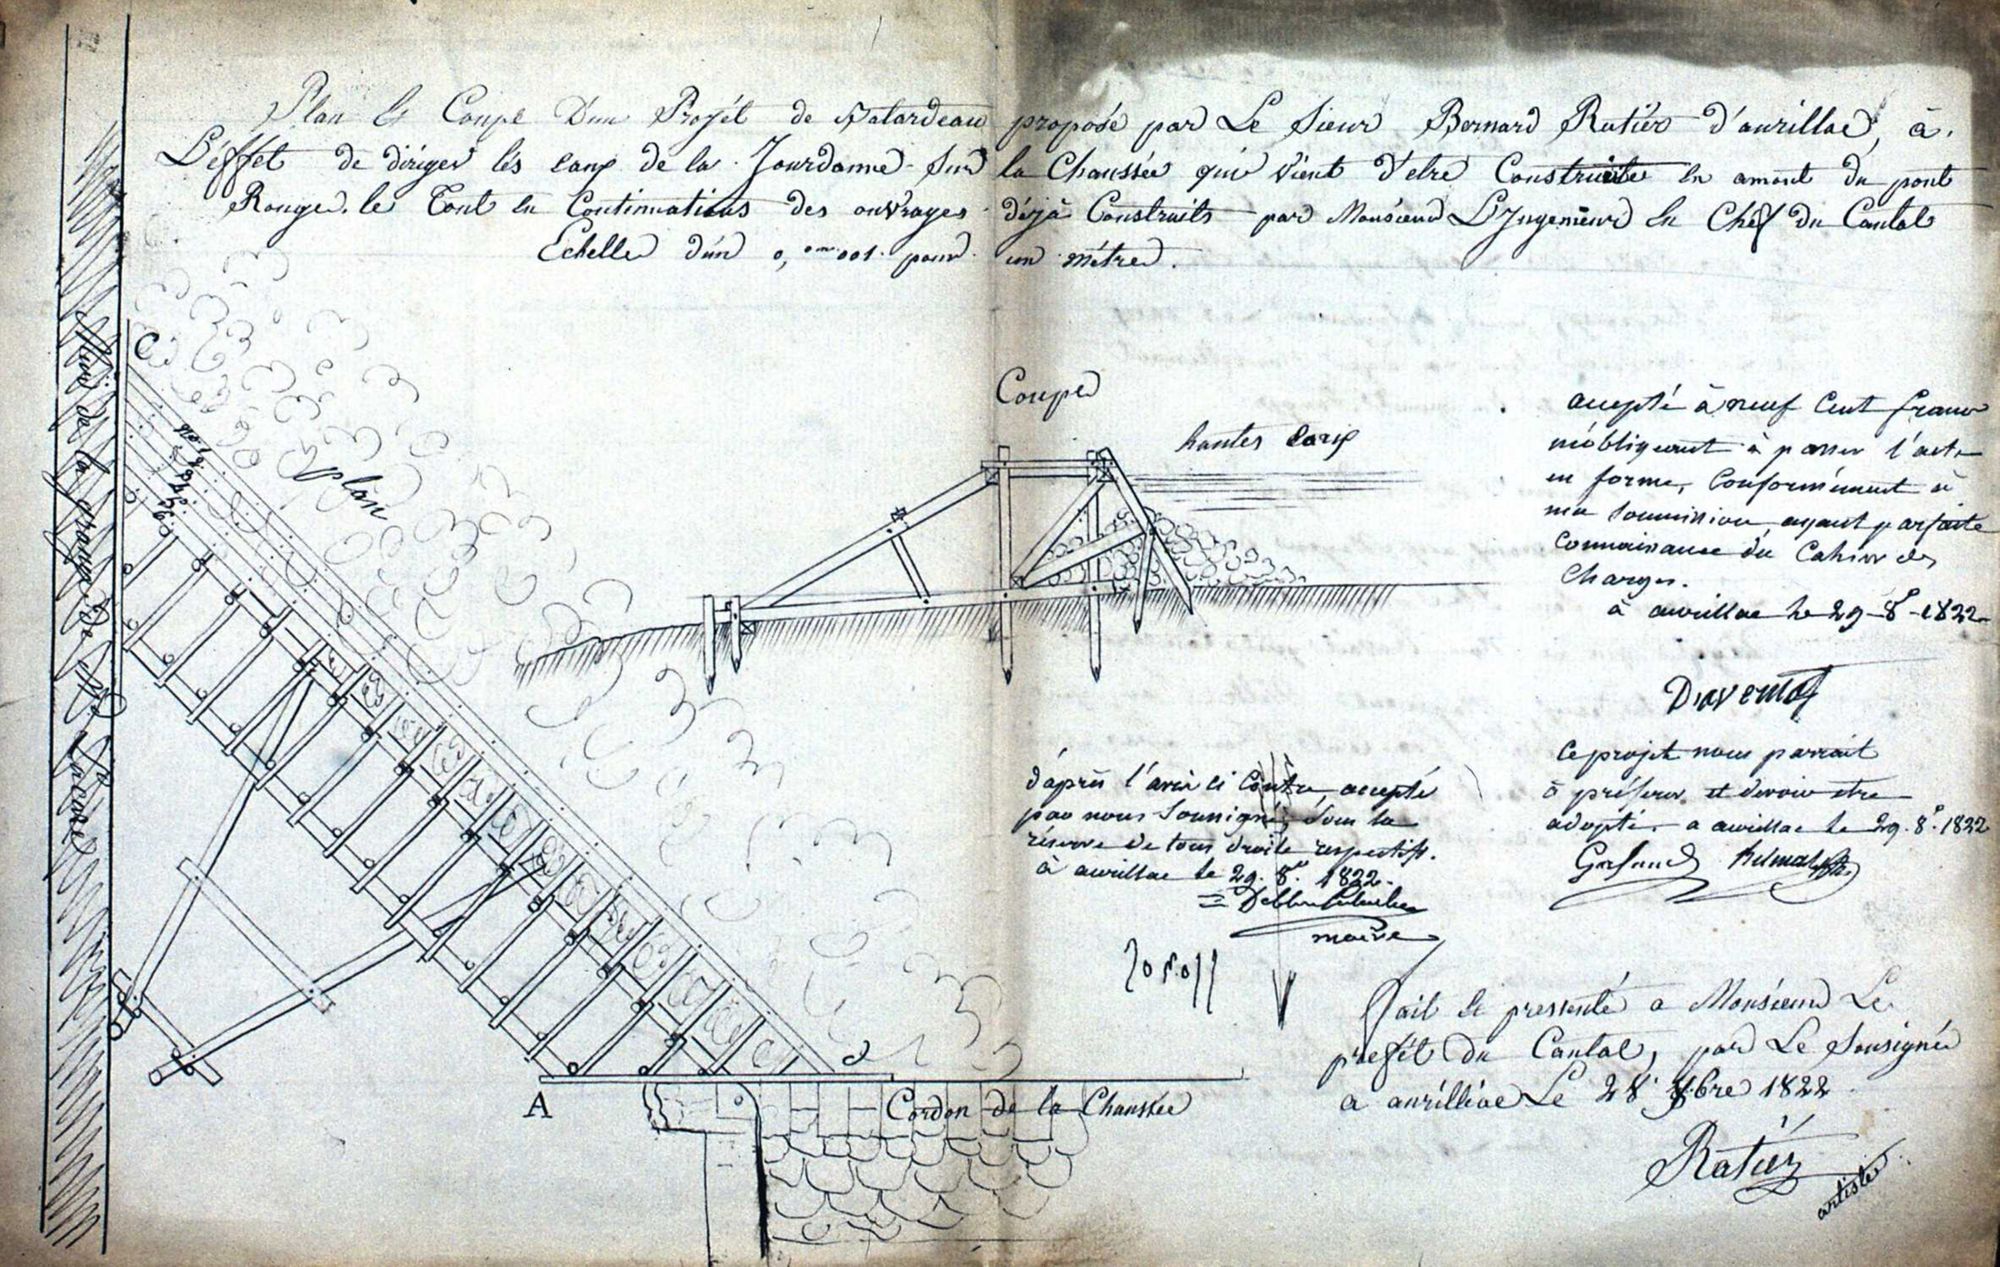 Plan et Coupe D'un Projét de Batardeau proposé par Le Sieur Bernard Ratier d'aurillac, à
L'effet de diriger lés eaux de la Jourdanne Sur la Chaussée qui vient D'etre Construite en amont du pont
Rouge. le Tout en Continuations des ouvrages déja Construits par Monsieur L'Ingenieur En Chéf du Cantal
Echelle d'un 0,m001. pour un métre.
Mur de la grange de Mr Lacoré
C
plan
Coupe
hautes eaux
accepté à neuf Cent francs
m'obligeant à passer l'acte
en forme, Conformément à
ma Soumission ayant parfaite
Connaissance du Cahier des
Charges.
à aurillac le 29 8e 1822
ce projet nous parrait
à préferer et devoir etre
adopté. a aurillac le 29. 8e. 1822
d'après l'avis ci Contre accepté
par nous Soussigné, Sous la
réserve de tous droits respectifs.
à aurillac le 29. 8e. 1822.
maire
Fait et pressenté a Monsieur Le
prefét du Cantal, par Le Sousigné
a aurilliac Le 28 8bre 1822
Ratier
artiste
A
Cordon de la Chaussée